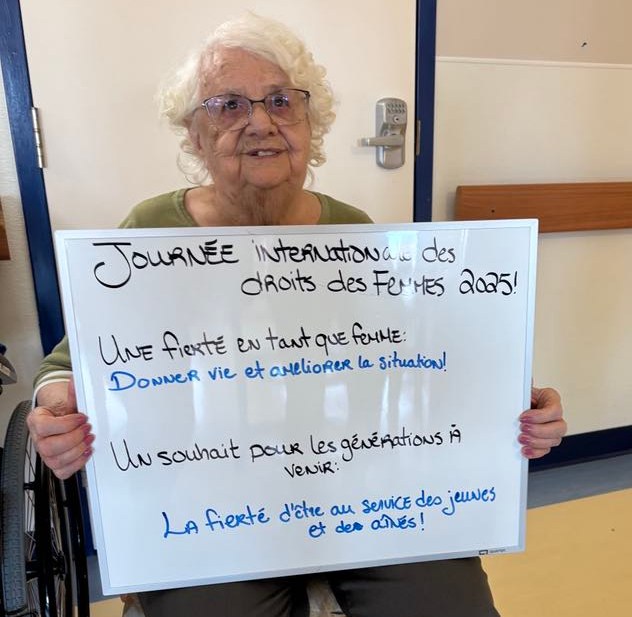 JOURNÉE INTERNATIONALE des
droits des FEMMES 2025!
UNE fierté en tant que femme:
DONNER vie et AMELIORER la situation!
UN souhait pour les générations À
venir:
LA fierté d'être au service des jeunes
et des aînés!